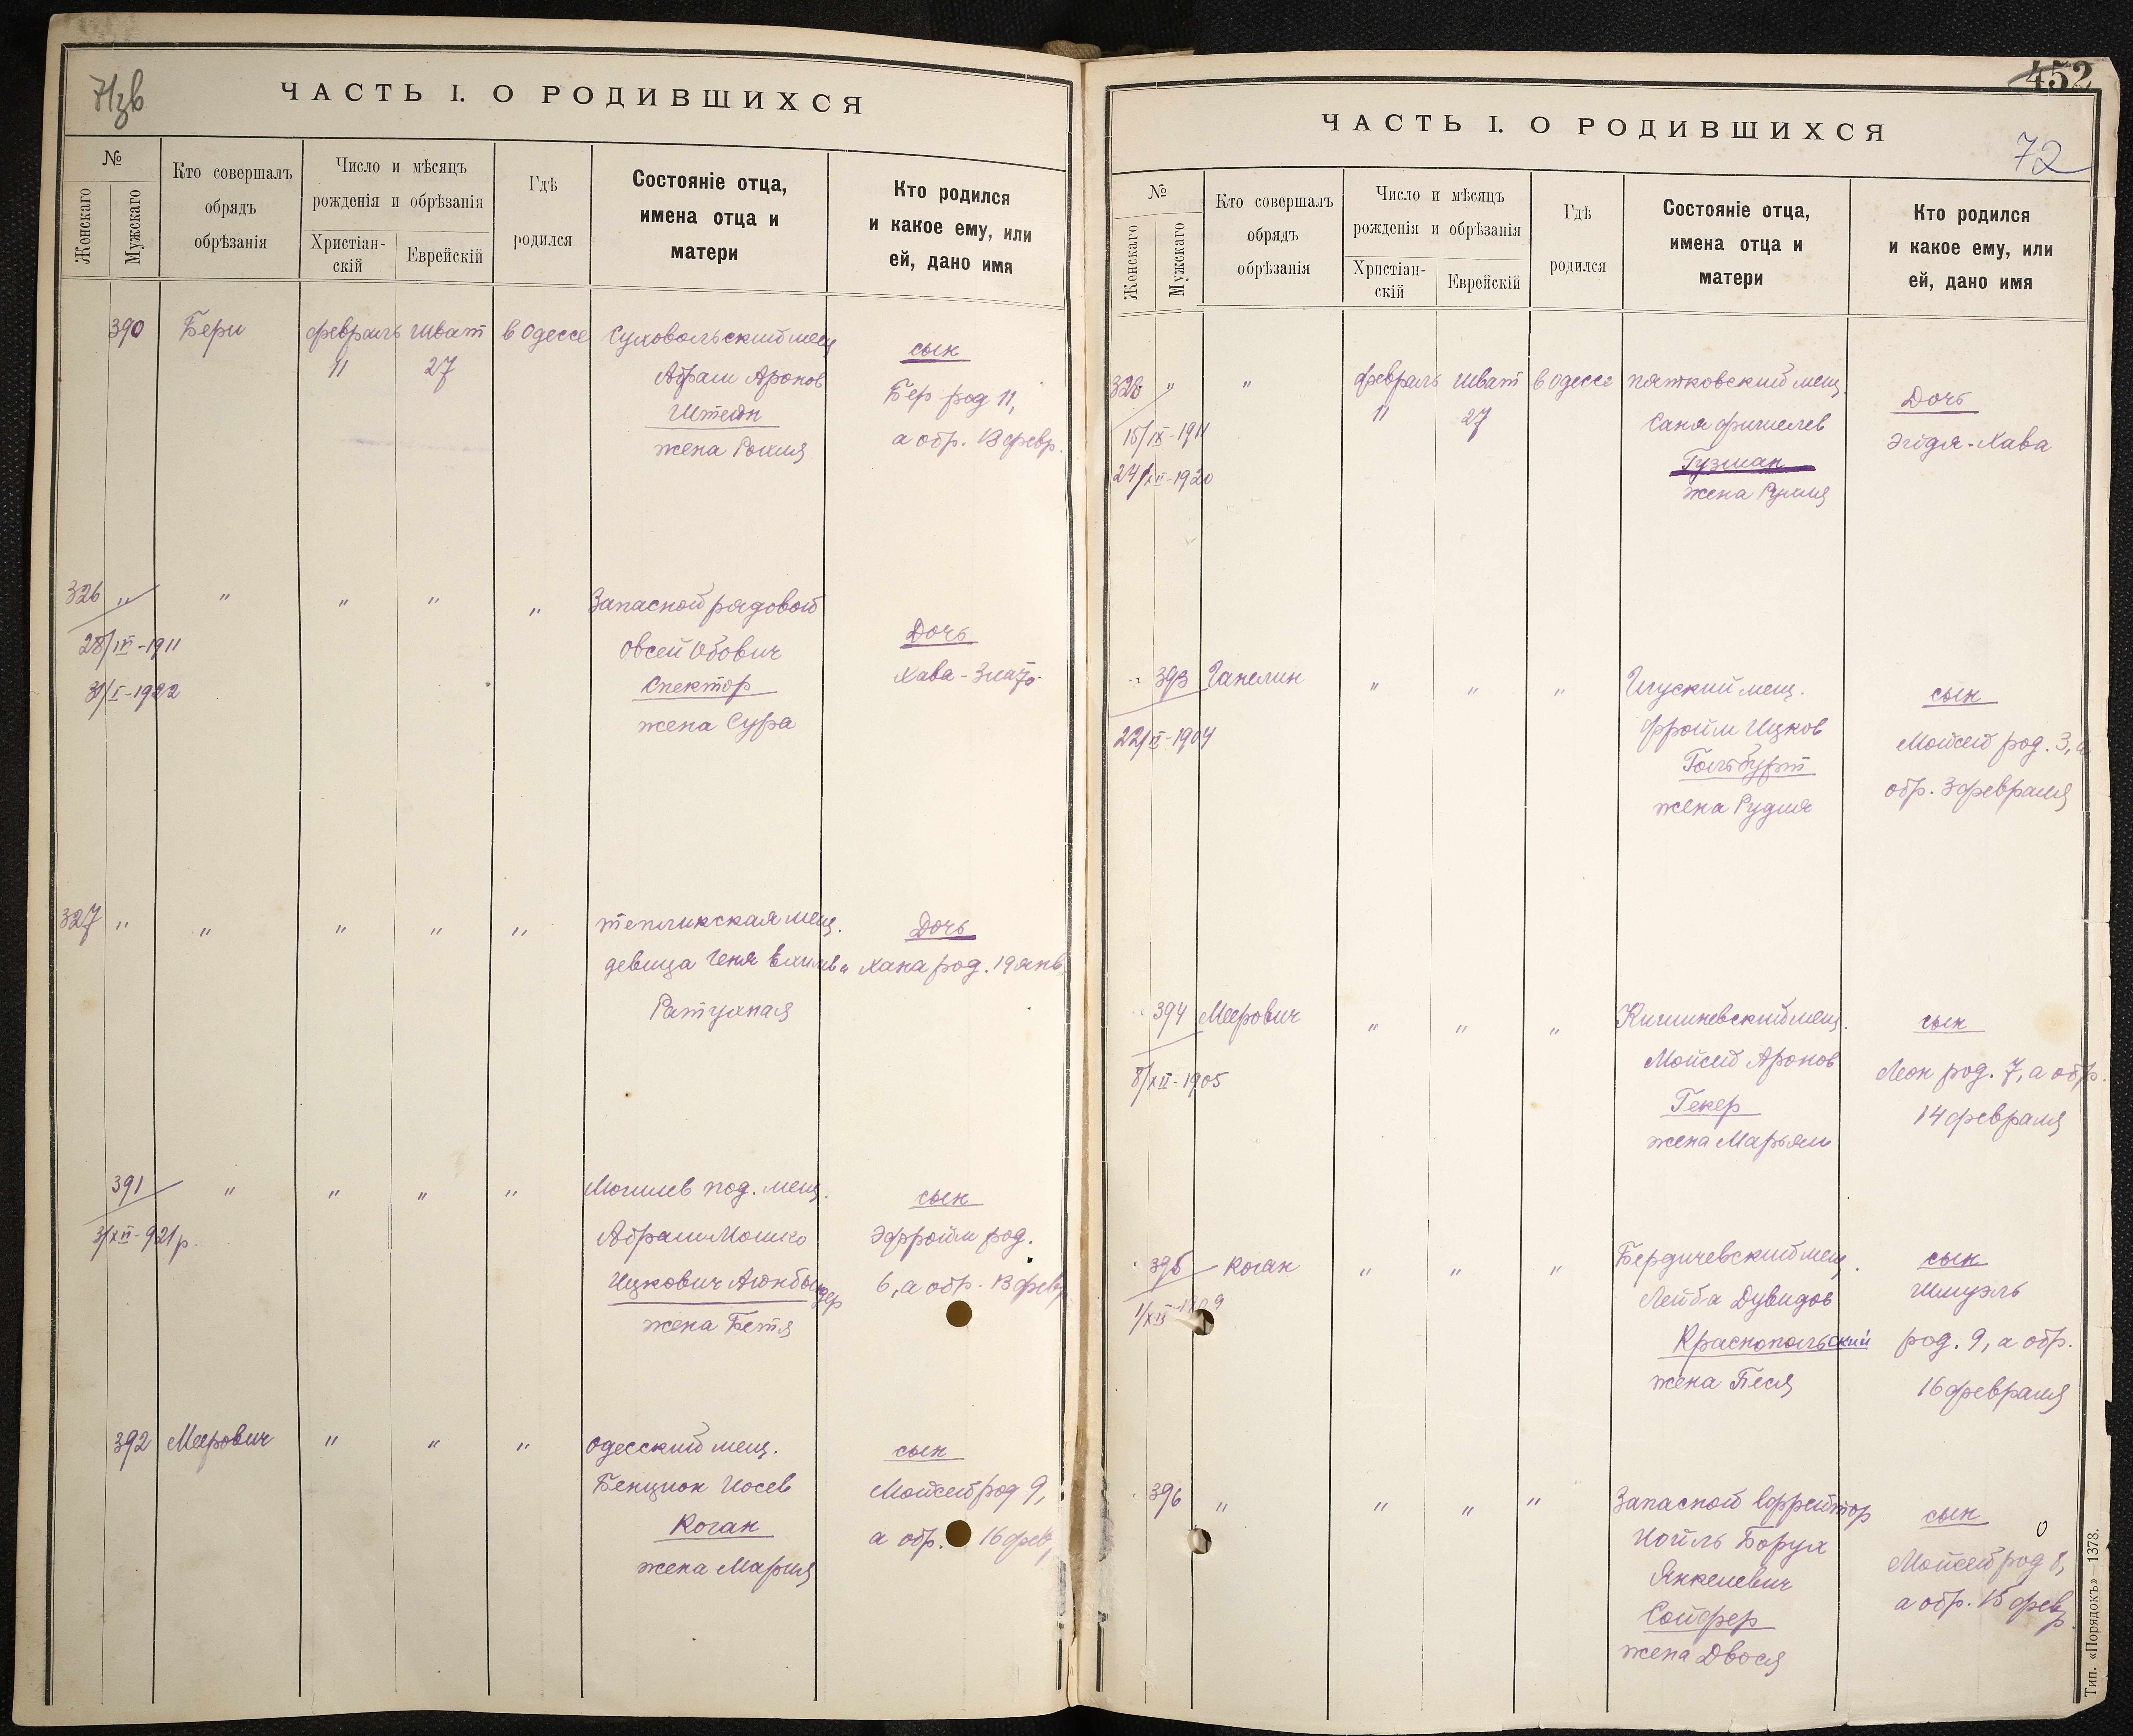 71зв
ЧАСТЬ I. О РОДИВШИХСЯ
№
Женскаго
Мужскаго
Кто совершалъ
обрядъ
обрѣзанія
Число и мѣсяцъ
рожденія и обрѣзанія
Христіан-
скій
Еврейскій
Гдѣ
родился
Состояніе отца,
имена отца и
матери
Кто родился
и какое ему, или
ей, дано имя
390 Бери февраль шват в Одессе
11 27
Суховольский мещ
Абрам Аронов
Штейн
жена Рохля
сын
Бер род 11,
а обр. 13 февр.
326 " " " " "
28/IV-1911
31/I-1922
Запасной рядовой
Овсей Обович
Спектор
жена Сура
Дочь
Хава-Злата
327 " " " " "
тепликская мещ.
девица Геня
Ратухная
Дочь
Хана род. 19 янв
391 " " " "
31/XII-921р.
Могилев под. мещ.
Абрам Мошко
Ицкович Аюнбындер
жена Бетя
сын
Эфройм род.
6, а обр. 13 февр
392 Меерович " " "
одесский мещ.
Бенцион Иосев
Коган
жена Мария
сын
Мойсей род 9,
а обр. 16 фев,
452
72
ЧАСТЬ I. О РОДИВШИХСЯ
№
Женскаго
Мужскаго
Кто совершалъ
обрядъ
обрѣзанія
Число и мѣсяцъ
рожденія и обрѣзанія
Христіан-
скій
Еврейскій
Гдѣ
родился
Состояніе отца,
имена отца и
матери
Кто родился
и какое ему, или
ей, дано имя
328 " " февраль шват в Одессе
11 27
15/IX-1911
24/XII-1920
пятковский мещ.
Саня Фишелев
Гузман
жена Рухля
Дочь
Эйдя-Хава
393 Ганелин " " "
22/IX-1904
мещ.
Фройм Ицков
Гольбурт
жена Рудля
сын
Мойсей род. 3, а
обр. 3 февраля
394 Меерович " " "
8/XII-1905
Кишиневский мещ.
Мойсей Аронов
Гекер
жена Марьям
сын
Леон род. 7, а обр.
14 февраля
395 Коган " " "
1/XII-1909
Бердичевский мещ.
Лейба Дувидов
Краснопольский
жена Песя
сын
Шмуэль
род. 9, а обр.
16 февраля
396 " " " "
Запасной Ефрейтор
Иойль Борух
Янкелевич
Сойфер
жена Двося
сын
Мойсей род 8,
а обр. 15 февр
Тип. «Порядокъ»—1378.